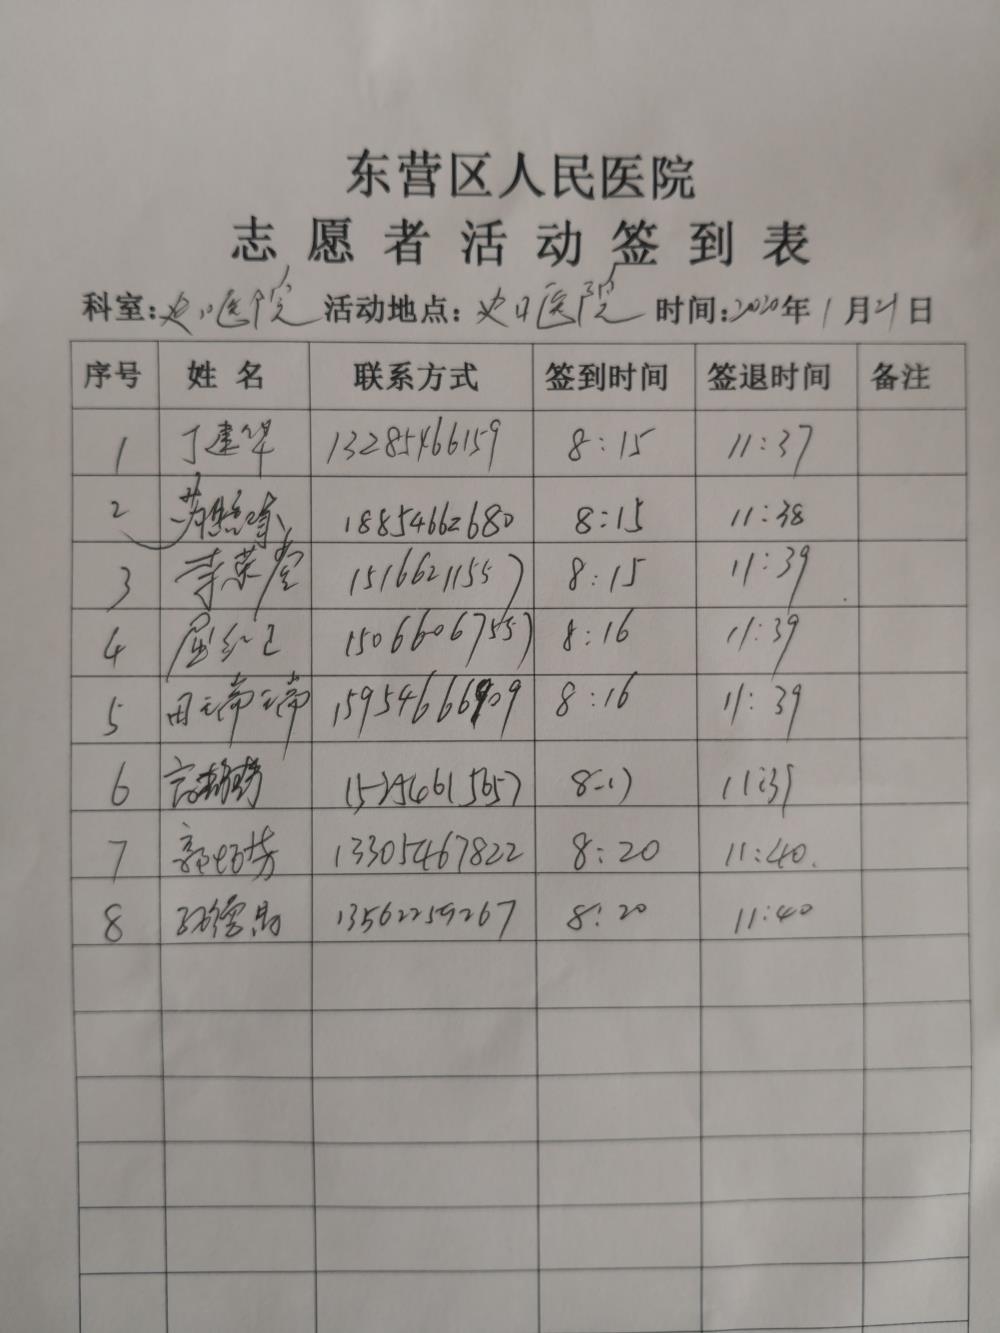 东营区人民医院
志愿者活动签到表
科室:史口医院 活动地点:史口医院 时间:2020年1月21日
序号 姓名 联系方式 签到时间 签退时间 备注
1 丁建华 13285466159 8:15 11:37
2 18854662680 8:15 11:38
3 李荣堂 15166211557 8:15 11:39
4 屈红卫 15066067557 8:16 11:39
5 田立常 15954666909 8:16 11:39
6 15254615657 8:17 11:39
7 郭 芳 13305467822 8:20 11:40.
8 13562259267 8:20 11:40